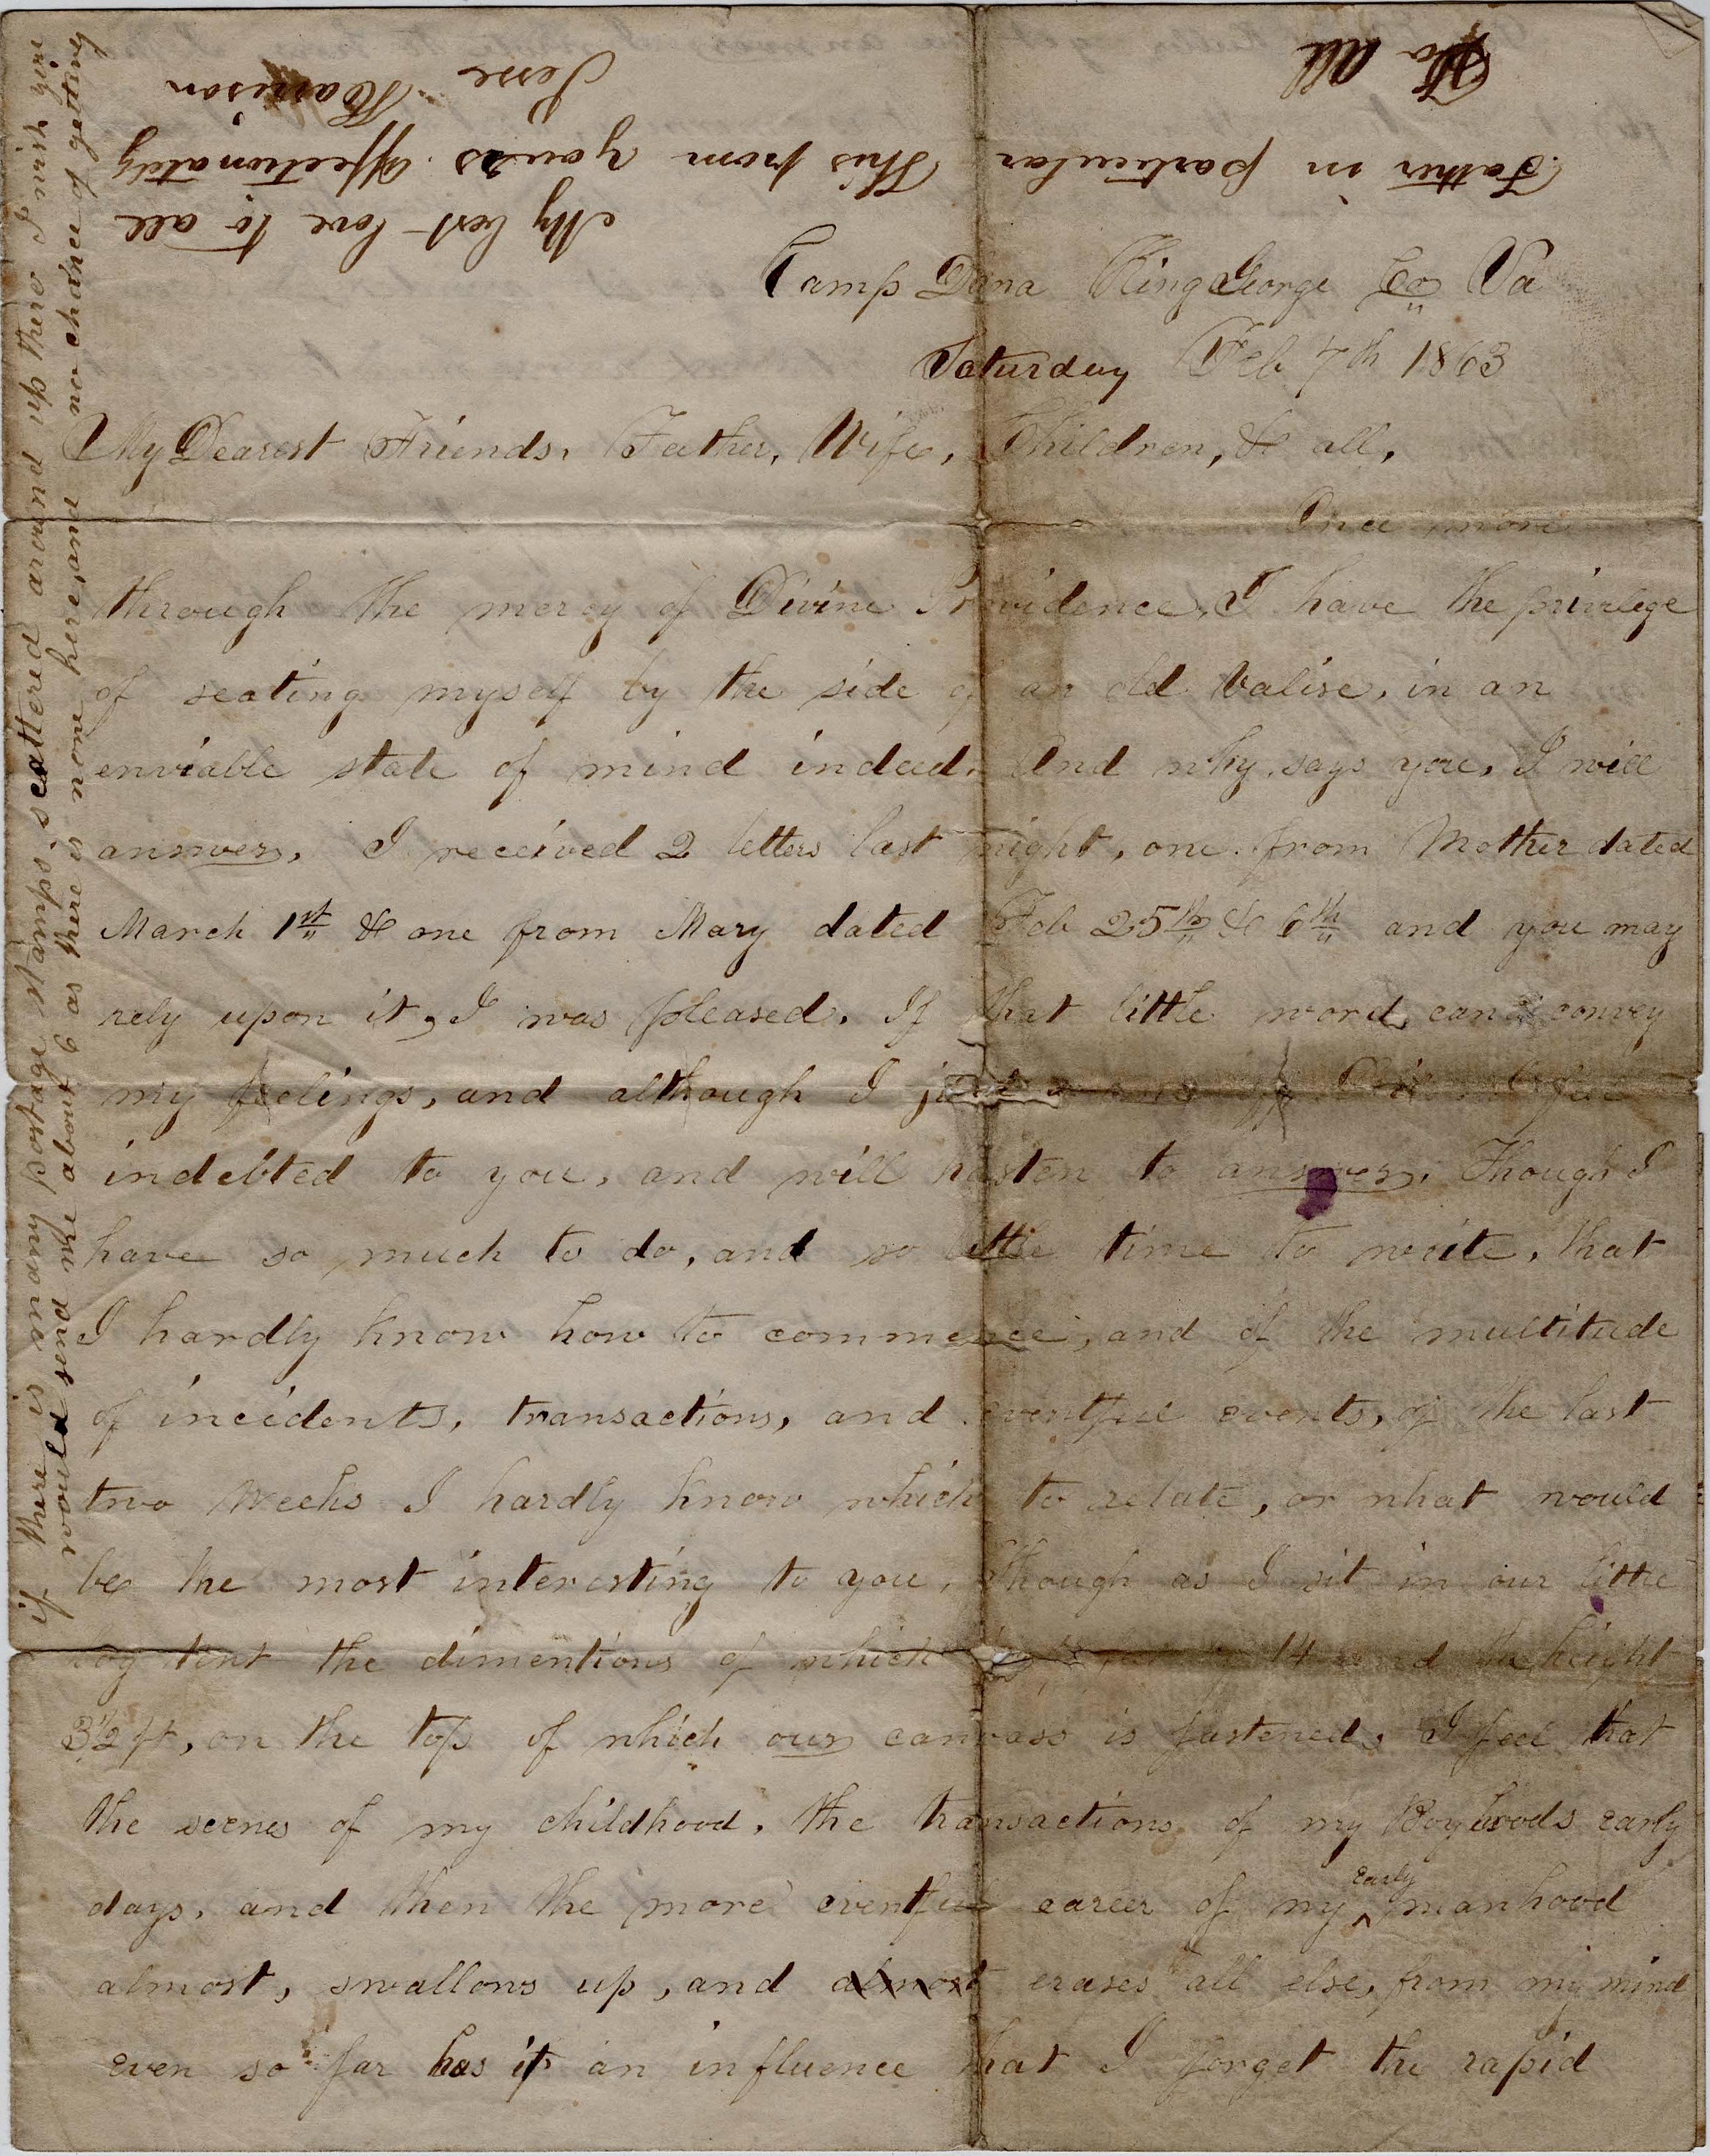 Camp Dana King George Co Va
Saturday Feb 7th 1863
My Dearest Friends, Father, Wife, Children, & all,
Once more
through the mercy of Divine Providence, I have the privilege
of seating myself by the side of an old valise, in an
enviable state of mind indeed. And why, says you, I will
answer, I received 2 letters last night, one from Mother dated
March 1st & one from Mary dated Feb 25th & 6th and you may
rely upon it, I was pleased. If that little word, can convey
my feelings, and although I
indebted to you, and will hasten to answer, Though I
have so much to do, and so little time to write, that
I hardly know how to commence, and of the multitude
of incidents, transactions, and eventful events, of the last
two weeks I hardly know which to relate, or what would
be the most interesting to you, though as I sit in our little
log tent the dimentions of which 14 and the height
3 1/2 ft, on the top of which our canvass is fastened. I feel that
the scenes of my childhood, the transactions of my Boyhoods early
days, and then the more eventful career of my early manhood
almost, swallows up, and almost erases all else, from my mind
even so far has it an influence that I forget the rapid
if there is many postage stamps scattered around up there I wish you
would send me about 6 as there is none here, and no chance of getting
My best love to all
Father in particular This from yours affectionately
Jesse Harrison
To All